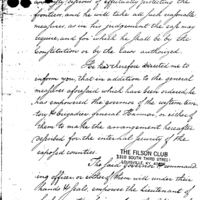 effectually of protecting the
frontier, and he will take all such requisite
measures, as in his judgement the exigence
require, and for which he shall be by the
Constitution or by the laws authorized.
He has therefore directed me to
inform you, that in addition to the general
measures aforesaid which have been ordered, he
has empowered the governor of the western terri-
tory & brigadier general Harmar, or either of
them to make the arrangement hereafter
for the internal security of the
exposed counties.
THE FILSON CLUB
SOUTH THIRD STREET
LOUISVILLE
The said governor & commanding
officer or either of them will under their
hands & seals, empower the Lieutenant of